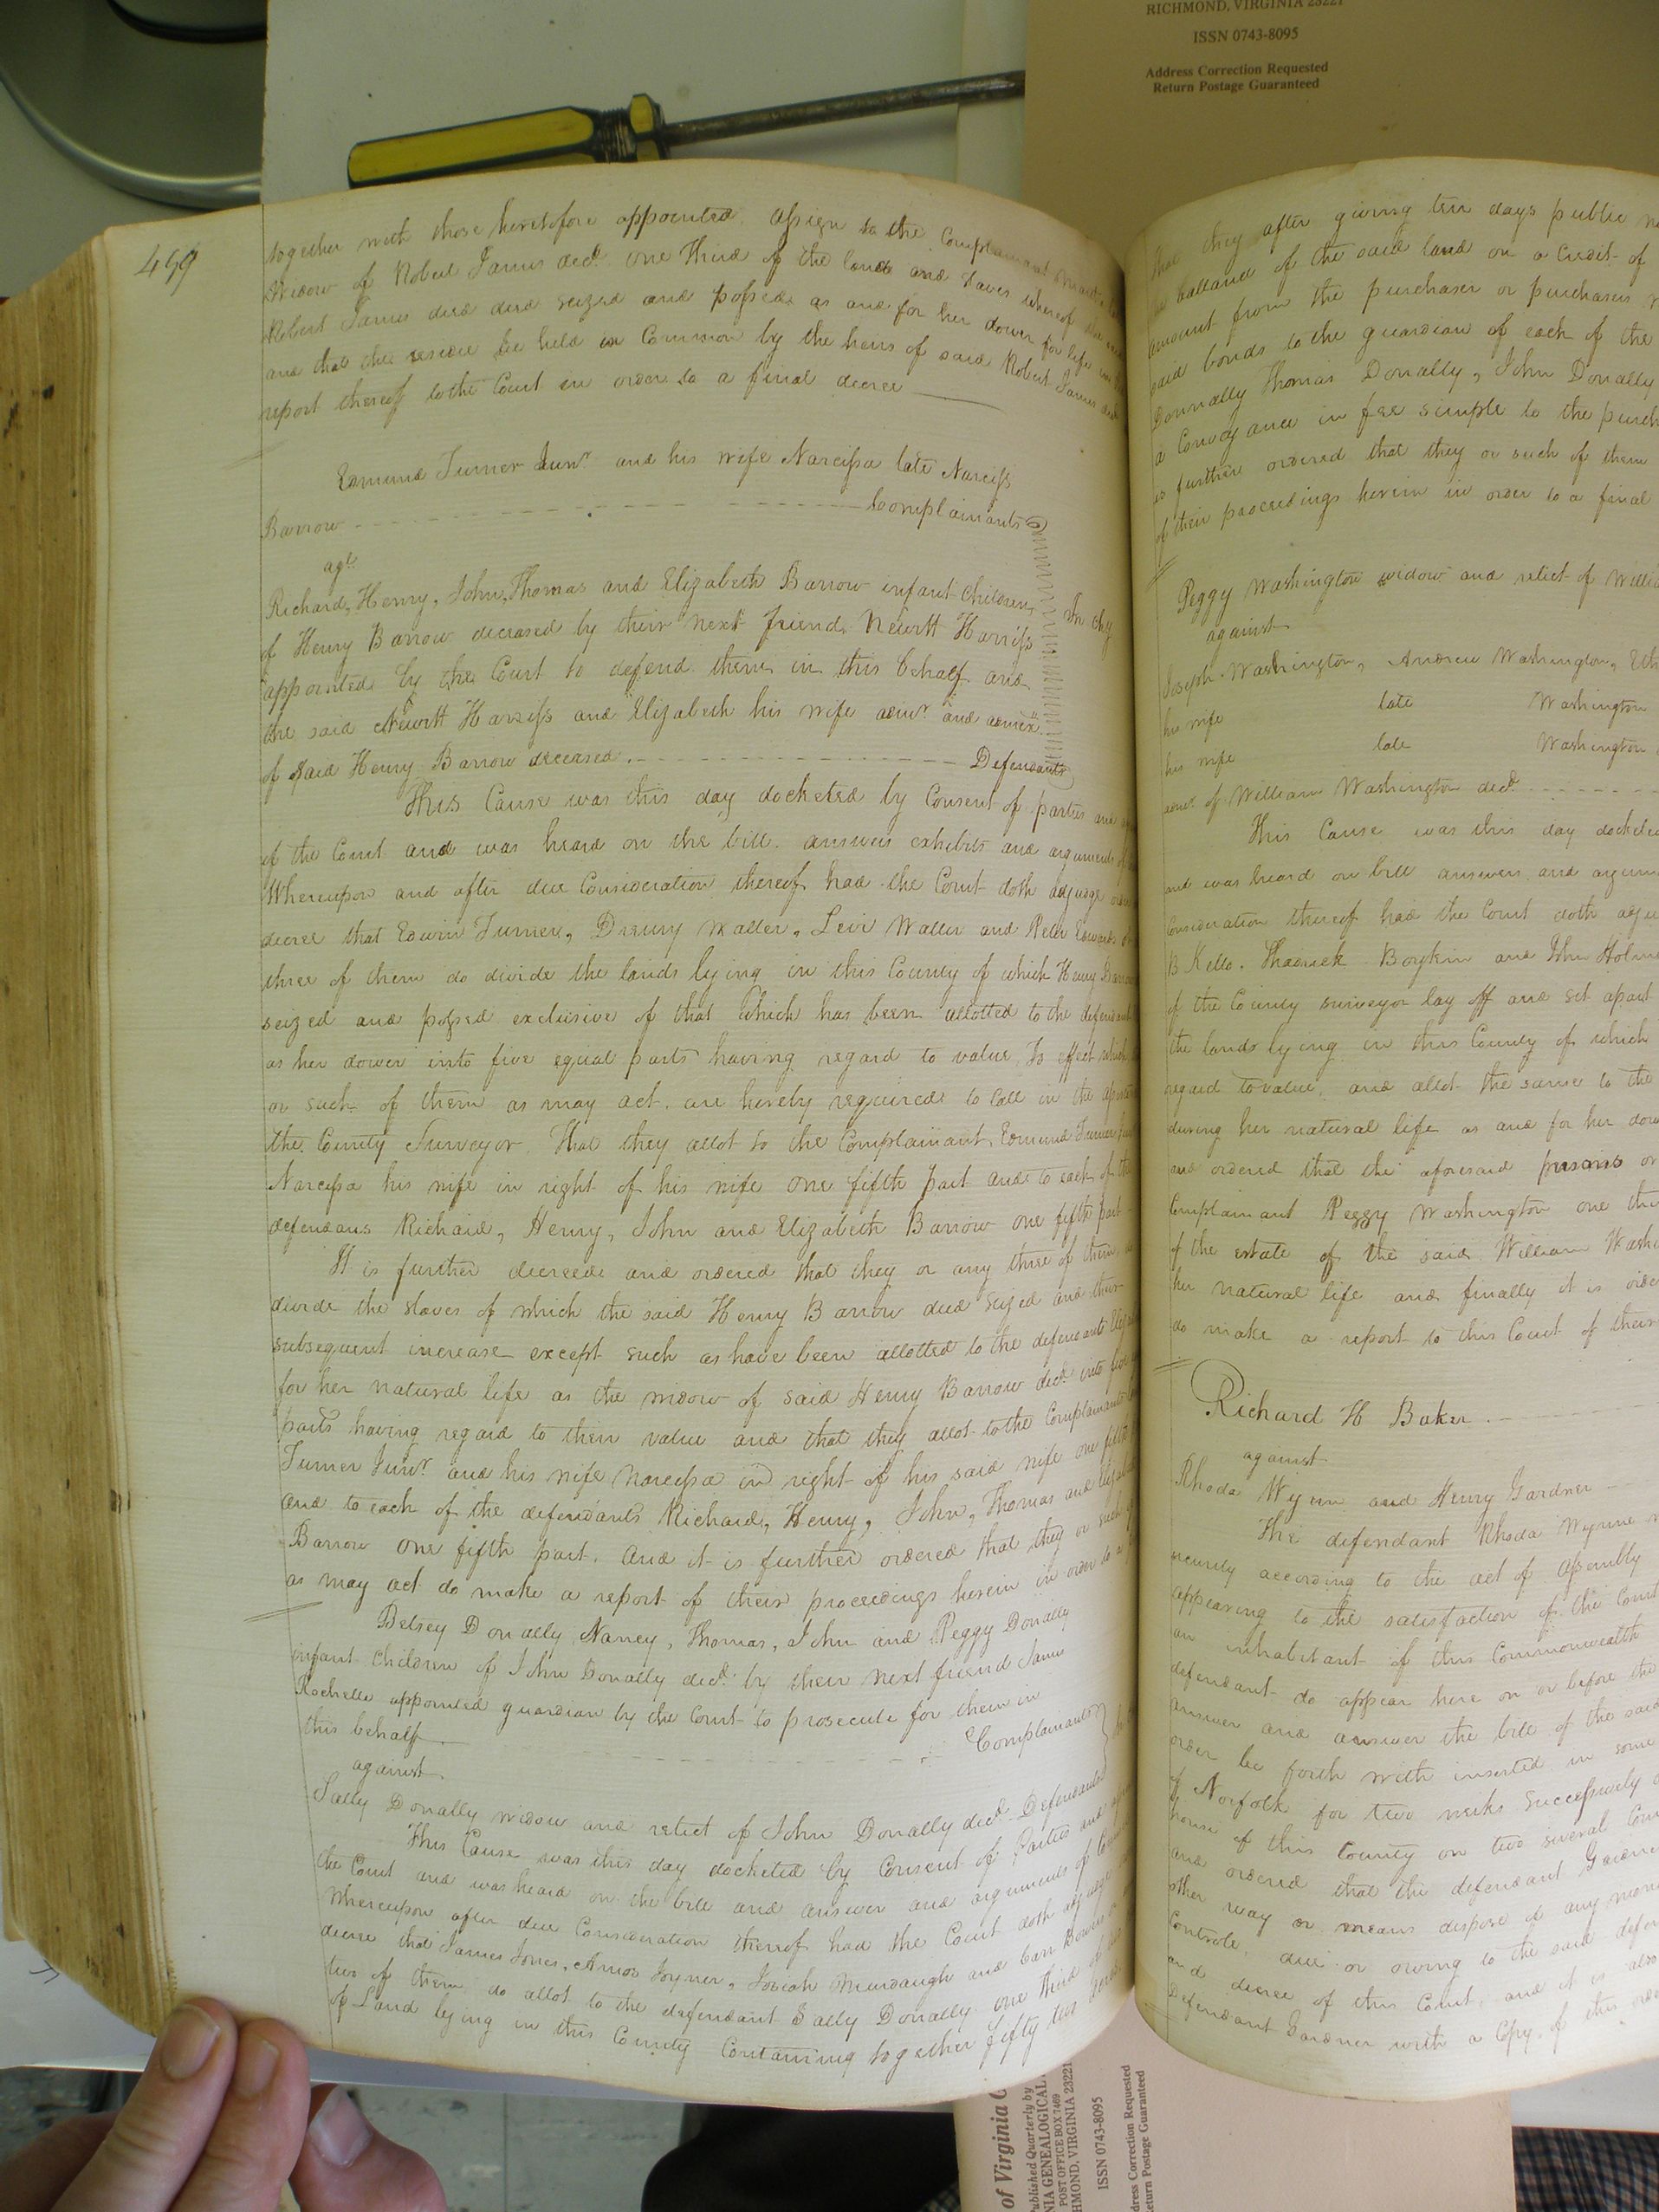 RICHMOND, VIRGINIA 23221
ISSN 0743-8095
Address Correction Requested
Return Postage Guaranteed
459
together with those heretofore appointed assign to the Complainant
Widow of Robert James decd. one Third of the land and slaves whereof
Robert James decd died seized and possessd as and for her dower for life
and that the residue be held in Common by the heirs of said Robert James decd
report thereof to the Court in order to a final decree
Edmund Turner Junr. and his wife Narcissa late Narciss
Barrow Complainants
agt.
Richard, Henry, John, Thomas and Elizabeth Barrow infant children In Chy
of Henry Barrow deceased by their next friend Newitt Harriss
appointed by the Court to defend them in this behalf and
the said Newitt Harriss and Elizabeth his wife admr. and admrx.
of said Henry Barrow deceased. Defendants
This Cause was this day docketed by Consent of parties and
of the Court and was heard on the bill. answers exhibits and arguments of
Whereupon and after due Consideration thereof had the Court doth adjudge order
decree that Edwin Turner, Drewry Waller, Levi Waller and Peter Edwards
three of them do divide the lands lying in this County of which Henry Barrow
seized and possed exclusive of that which has been allotted to the defendant
as her dower into five equal parts having regard to value To effect which
or such of them as may act. are hereby required to call in the
the County Surveyor. That they allot to the Complainant Edmund Turner Junr
Narcissa his wife in right of his wife one fifth part and to each of the
defendans Richard, Henry, John and Elizabeth Barrow one fifth part
It is further decreed and ordered that they or any three of them
divide the slaves of which the said Henry Barrow died seized and their
subsequent increase except such as have been allotted to the defendants
for her natural life as the widow of said Henry Barrow decd. into five
parts having regard to their value and that they allot to the Complainants
Turner Junr. and his wife Narcissa in right of his said wife one fifth
and to each of the defendants Richard, Henry, John, Thomas and
Barrow one fifth part. And it is further ordered that they or such
as may act do make a report of their proceedings herein in order to a
Betsey Donally, Nancy, Thomas, John and Peggy Donally
infant Children of John Donally decd. by their next friend James
Rochelle appointed guardian by the Court to prosecute for them in
this behalf. Complainants
against
Sally Donally widow and relict of John Donally decd. Defendants
This Cause was this day docketed by Consent of Parties and
the Court and was heard on the bill and answer and arguments of
Whereupon after due Consideration thereof had the Court doth adjudge
decree that James Jones, Amos Joyner, Josiah Murdaugh and Carr Bowers
two of them do allot to the defendant Sally Donally one third of
of Land lying in this County Containing together fifty two
that they after giving ten days public
ballance of the said land on a Credit of
amount from the purchaser or purchasers
said bonds to the guardian of each of the
Donnally Thomas Donally, John Donally
a Conveyance in fee simple to the
is further ordered that they or such of them
of their proceedings herein in order to a final
Peggy Washington widow and relict of
against
Joseph Washington, Andrew Washington,
his wife late Washington
his wife late Washington
admr. of William Washington decd.
This Cause was this day
and was heard on bill answers and
Consideration thereof had the Court doth
B Kello. Thadrick Boykin and John
of the County surveyor lay off and set apart
the lands lying in this County of which
regard to value, and allot the same to the
during her natural life as and for her
and ordered that the aforesaid persons or
Complainant Peggy Washington one
of the estate of the said William
her natural life and finally it is
do make a report to this Court of their
Richard H Baker
against
Rhoda Wynn and Henry Gardner
The defendant Rhoda Wynne
security according to the act of Assembly
appearing to the satisfaction of the Court
an inhabitant of this Commonwealth
defendant do appear here on or before the
answer and answer the bill of the said
order be forth with inserted in some
of Norfolk for two weeks Successively
house of this County on two several
and ordered that the defendant
other way or means dispose of any
Controle, due or owing to the said
and decree of this Court, and it is also
Defendant Gardner with a Copy of this
of Virginia
Published Quarterly by
NIA GENEALOGICAL
POST OFFICE BOX 7469
HMOND, VIRGINIA 23221
ISSN 0743-8095
Address Correction Requested
Return Postage Guaranteed